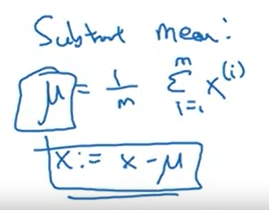 Subtract mean:
μ = 1/m Σ_{i=1}^{m} x^{(i)}
x := x - μ